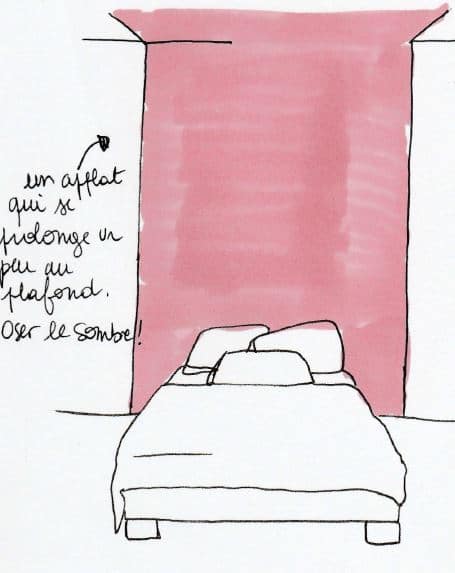 un applat
qui se
prolonge un
peu au
plafond.
Oser le sombre!